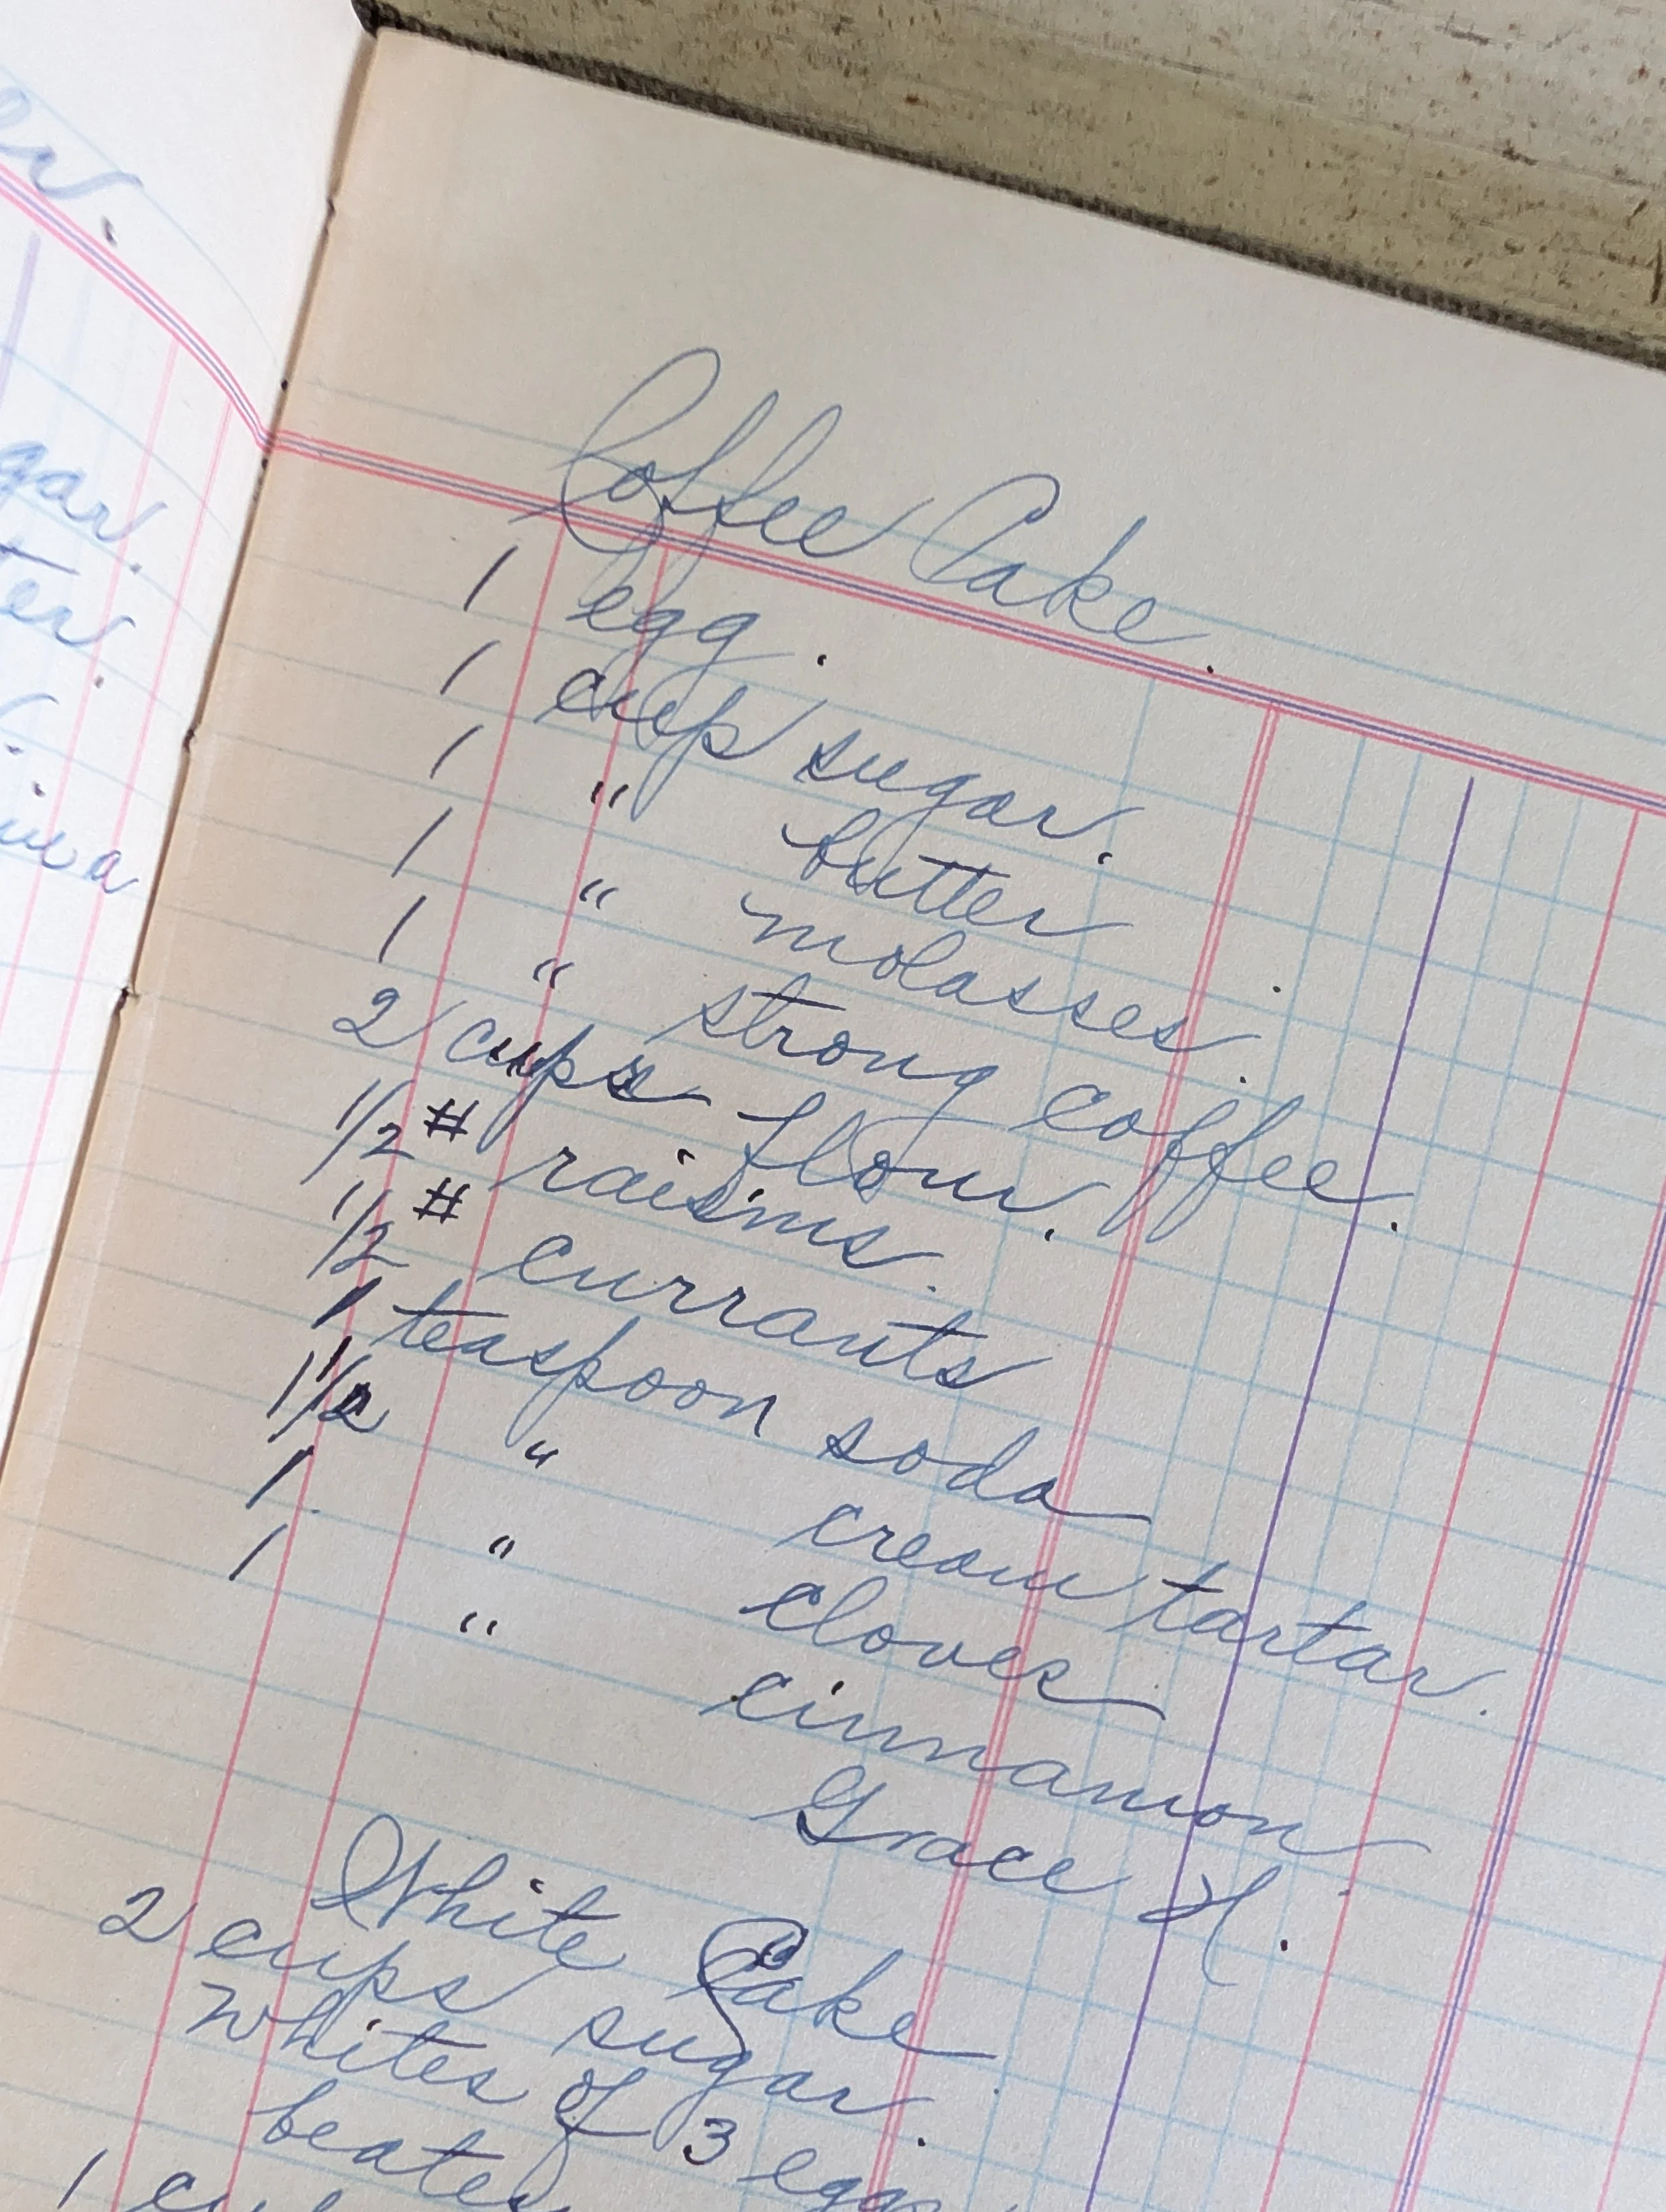 Coffee Cake.
1 egg.
1 cup sugar.
1 " butter
1 " molasses.
1 " strong coffee.
2 cups flour.
1/2 # raisins.
1/2 # currants
1 teaspoon soda
1 1/2 " cream tartar.
1 " cloves
1 " cinnamon
Grace H.
White Cake
2 cups sugar.
Whites of 3